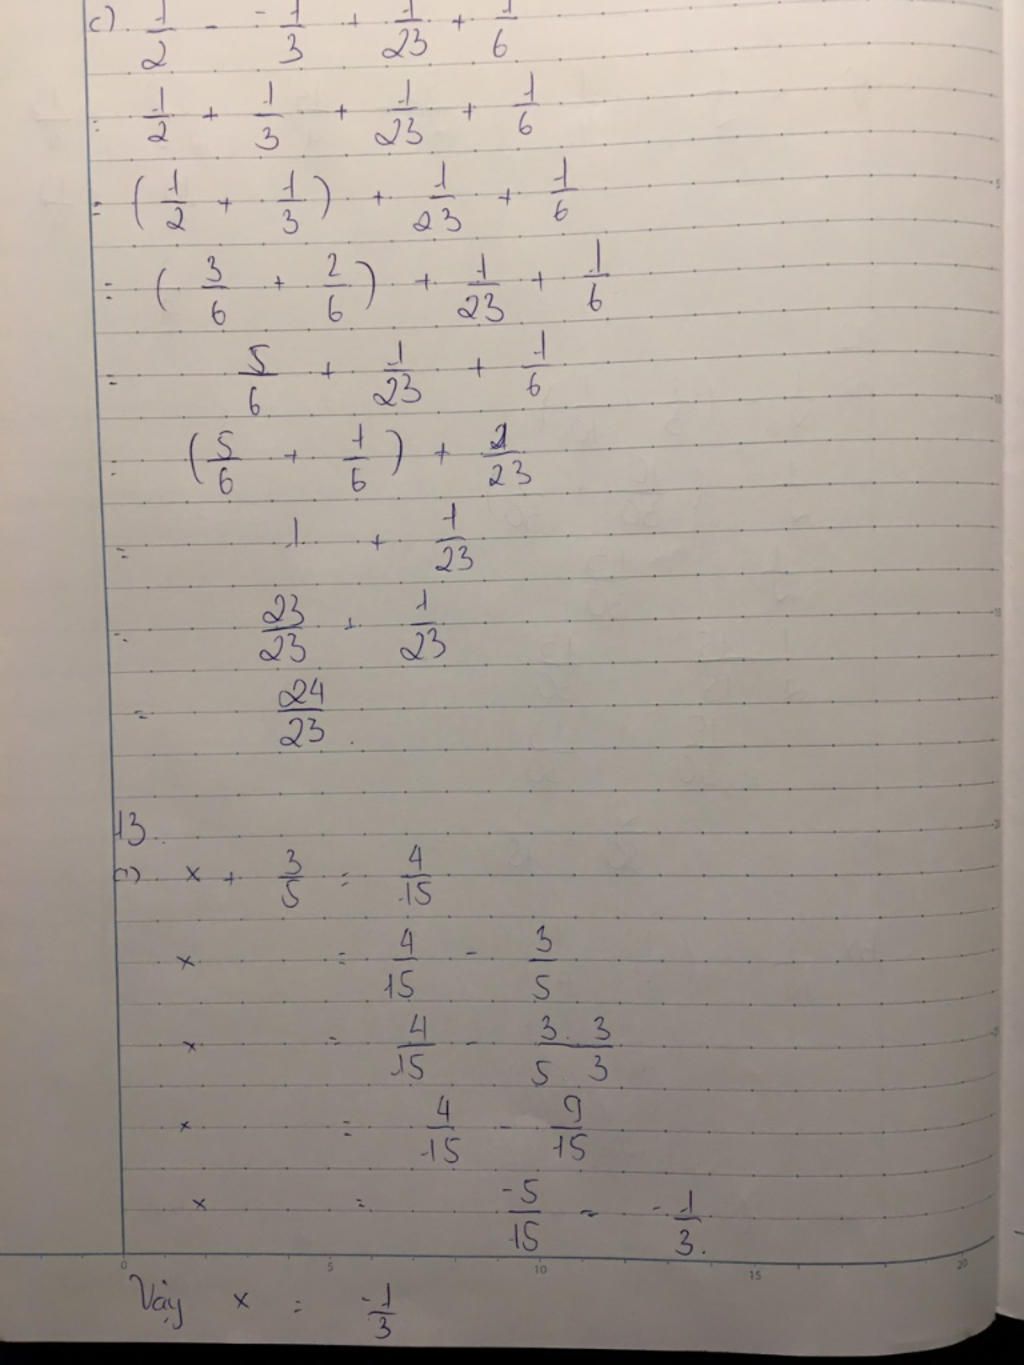 c) 1/2 - -1/3 + 1/23 + 1/6
= 1/2 + 1/3 + 1/23 + 1/6
= (1/2 + 1/3) + 1/23 + 1/6
= (3/6 + 2/6) + 1/23 + 1/6
= 5/6 + 1/23 + 1/6
= (5/6 + 1/6) + 1/23
= 1 + 1/23
= 23/23 + 1/23
= 24/23.
13.
a) x + 3/5 = 4/15
x = 4/15 - 3/5
x = 4/15 - 3.3/5.3
x = 4/15 - 9/15
x = -5/15 = -1/3.
0 5 10 15 20
Vậy x = -1/3